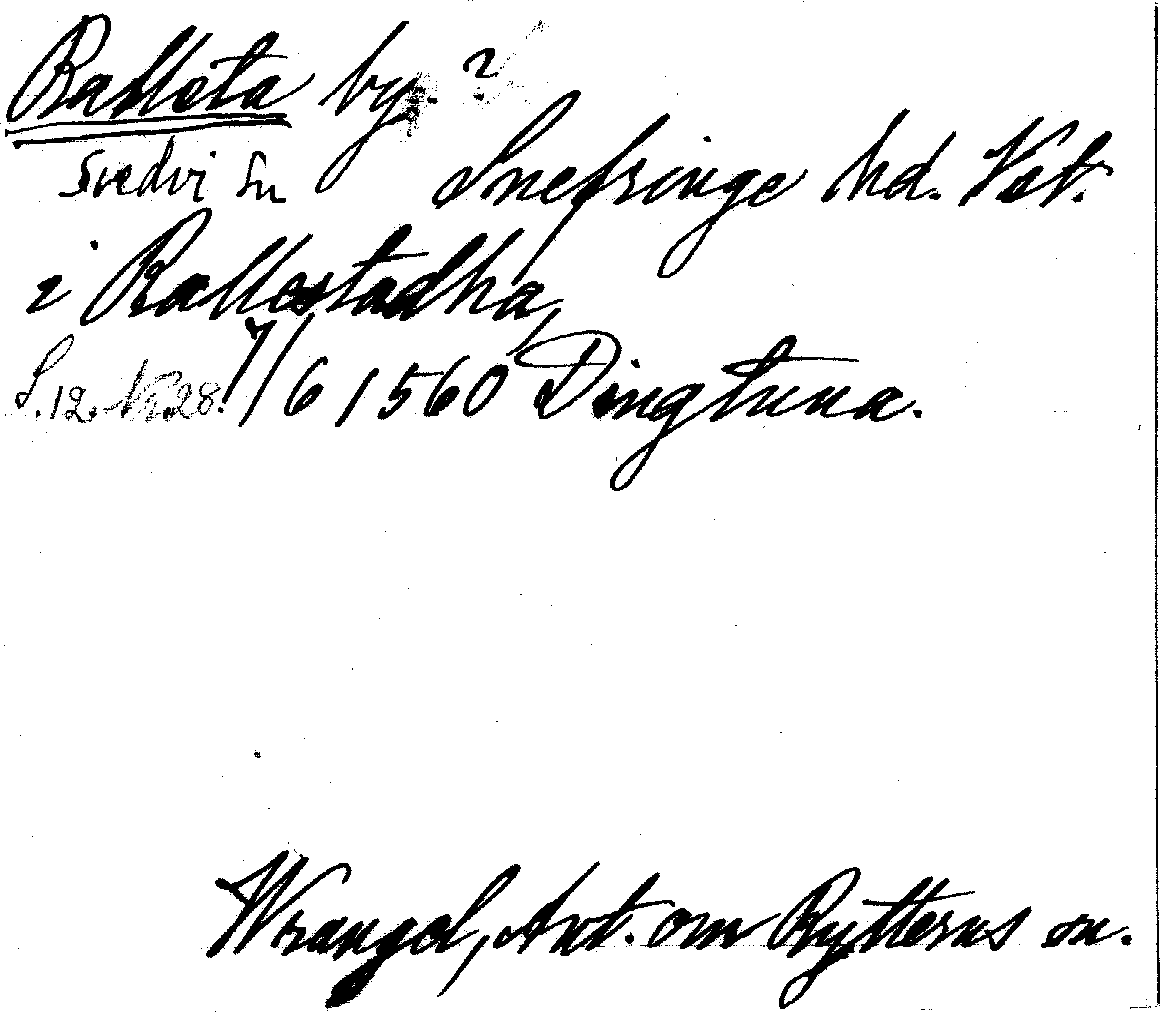 Rallsta by. ?
Svedvi sn Snefringe hd. Vst.
i Rallestadha,
S. 12. Nr. 28. 7/6 1560 Dingtuna.
Wrangel, Ant. om Rytterns sn.